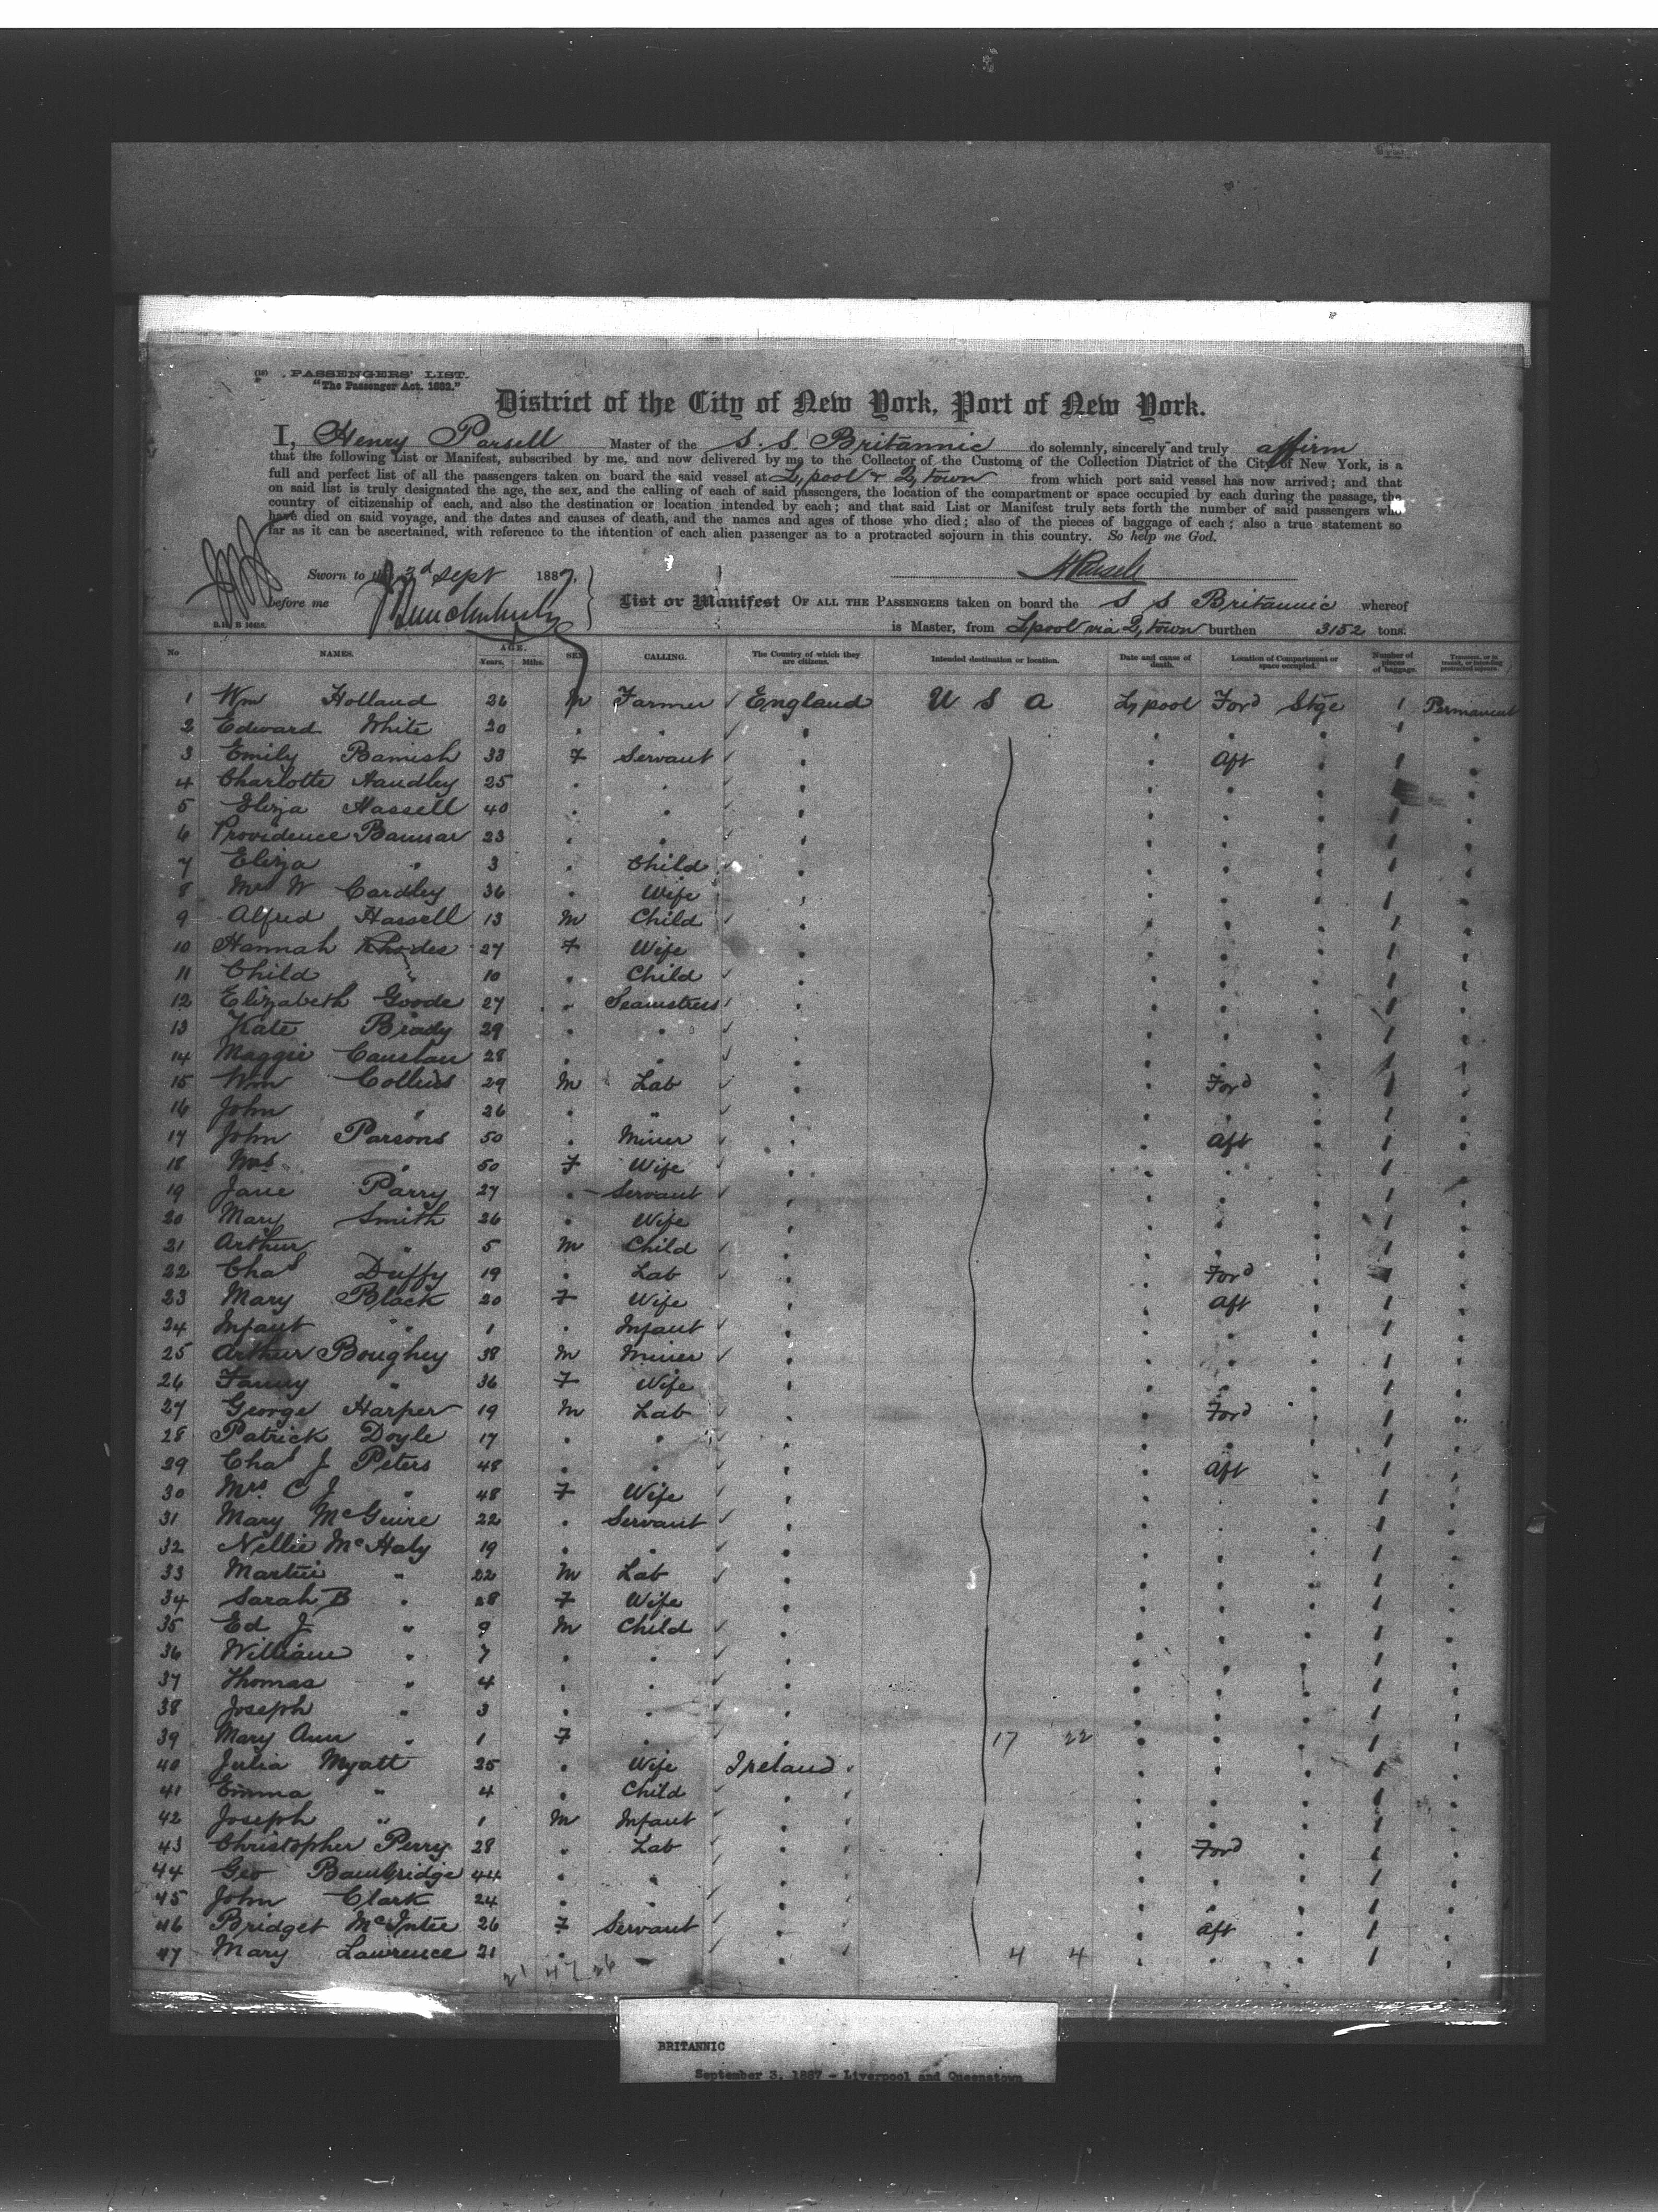 PASSENGERS' LIST.
"The Passenger Act, 1882."
District of the City of New York, Port of New York.
I, Henry Parsell Master of the S. S. Britannic do solemnly, sincerely and truly affirm
that the following List or Manifest, subscribed by me, and now delivered by me to the Collector of the Customs of the Collection District of the City of New York, is a
full and perfect list of all the passengers taken on board the said vessel at L,pool & Q,town from which port said vessel has now arrived; and that
on said list is truly designated the age, the sex, and the calling of each of said passengers, the location of the compartment or space occupied by each during the passage, the
country of citizenship of each, and also the destination or location intended by each; and that said List or Manifest truly sets forth the number of said passengers who
have died on said voyage, and the dates and causes of death, and the names and ages of those who died; also of the pieces of baggage of each; also a true statement so
far as it can be ascertained, with reference to the intention of each alien passenger as to a protracted sojourn in this country. So help me God.
Sworn to this 3d Sept 1887, HParsell
before me List or Manifest OF ALL THE PASSENGERS taken on board the S S Britannic whereof
is Master, from Lpool via Q,town burthen 3152 tons.
No NAMES. AGE. Years. Mths. SEX CALLING. The Country of which they are citizens. Intended destination or location. Date and cause of death. Location of Compartment or space occupied. Number of pieces of baggage. Transient, or in transit, or intending protracted sojourn.
1 Wm Holland 26 M Farmer England U S A L,pool Ford Stge 1 Permanent
2 Edward White 20 " " 1
3 Emily Bamish 33 F Servant Aft 1
4 Charlotte Handley 25
5 Eliza Hassell 40 1
6 Providence Bamsar 23 1
7 Eliza " 3 Child 1
8 Mrs W Cardley 36 Wife 1
9 Alfred Hassell 13 M Child 1
10 Hannah Rhodes 27 F Wife 1
11 Child " 10 Child 1
12 Elizabeth Goode 27 Seamstress 1
13 Kate Brady 29 1
14 Maggie Causlan 28 1
15 Wm Collins 29 M Lab Ford 1
16 John " 26 " 1
17 John Parsons 50 Miner Aft 1
18 Mrs " 50 F Wife 1
19 Jane Parry 27 Servant 1
20 Mary Smith 26 Wife 1
21 Arthur " 5 M Child 1
22 Chas Duffy 19 Lab Ford 1
23 Mary Black 20 F Wife Aft 1
24 Infant " 1 Infant 1
25 Arthur Boughey 38 M Miner 1
26 Fanny " 36 F Wife 1
27 George Harper 19 M Lab Ford 1
28 Patrick Doyle 17 " 1
29 Chas J Peters 48 " Aft 1
30 Mrs C J " 48 F Wife 1
31 Mary McGuire 22 Servant 1
32 Nellie McHaly 19 " 1
33 Martin " 22 M Lab 1
34 Sarah B " 28 F Wife 1
35 Ed J " 9 M Child 1
36 William " 7 " 1
37 Thomas " 4 " 1
38 Joseph " 3 " 1
39 Mary Ann " 1 F " 17 22 1
40 Julia Myatt 25 Wife Ireland 1
41 Emma " 4 Child 1
42 Joseph " 1 M Infant 1
43 Christopher Perry 28 Lab Ford 1
44 Geo Bambridge 44 " 1
45 John Clark 24 " 1
46 Bridget McIntie 26 F Servant Aft 1
47 Mary Lawrence 21 4 4 1
21 47 26
BRITANNIC
September 3, 1887 - Liverpool and Queenstown